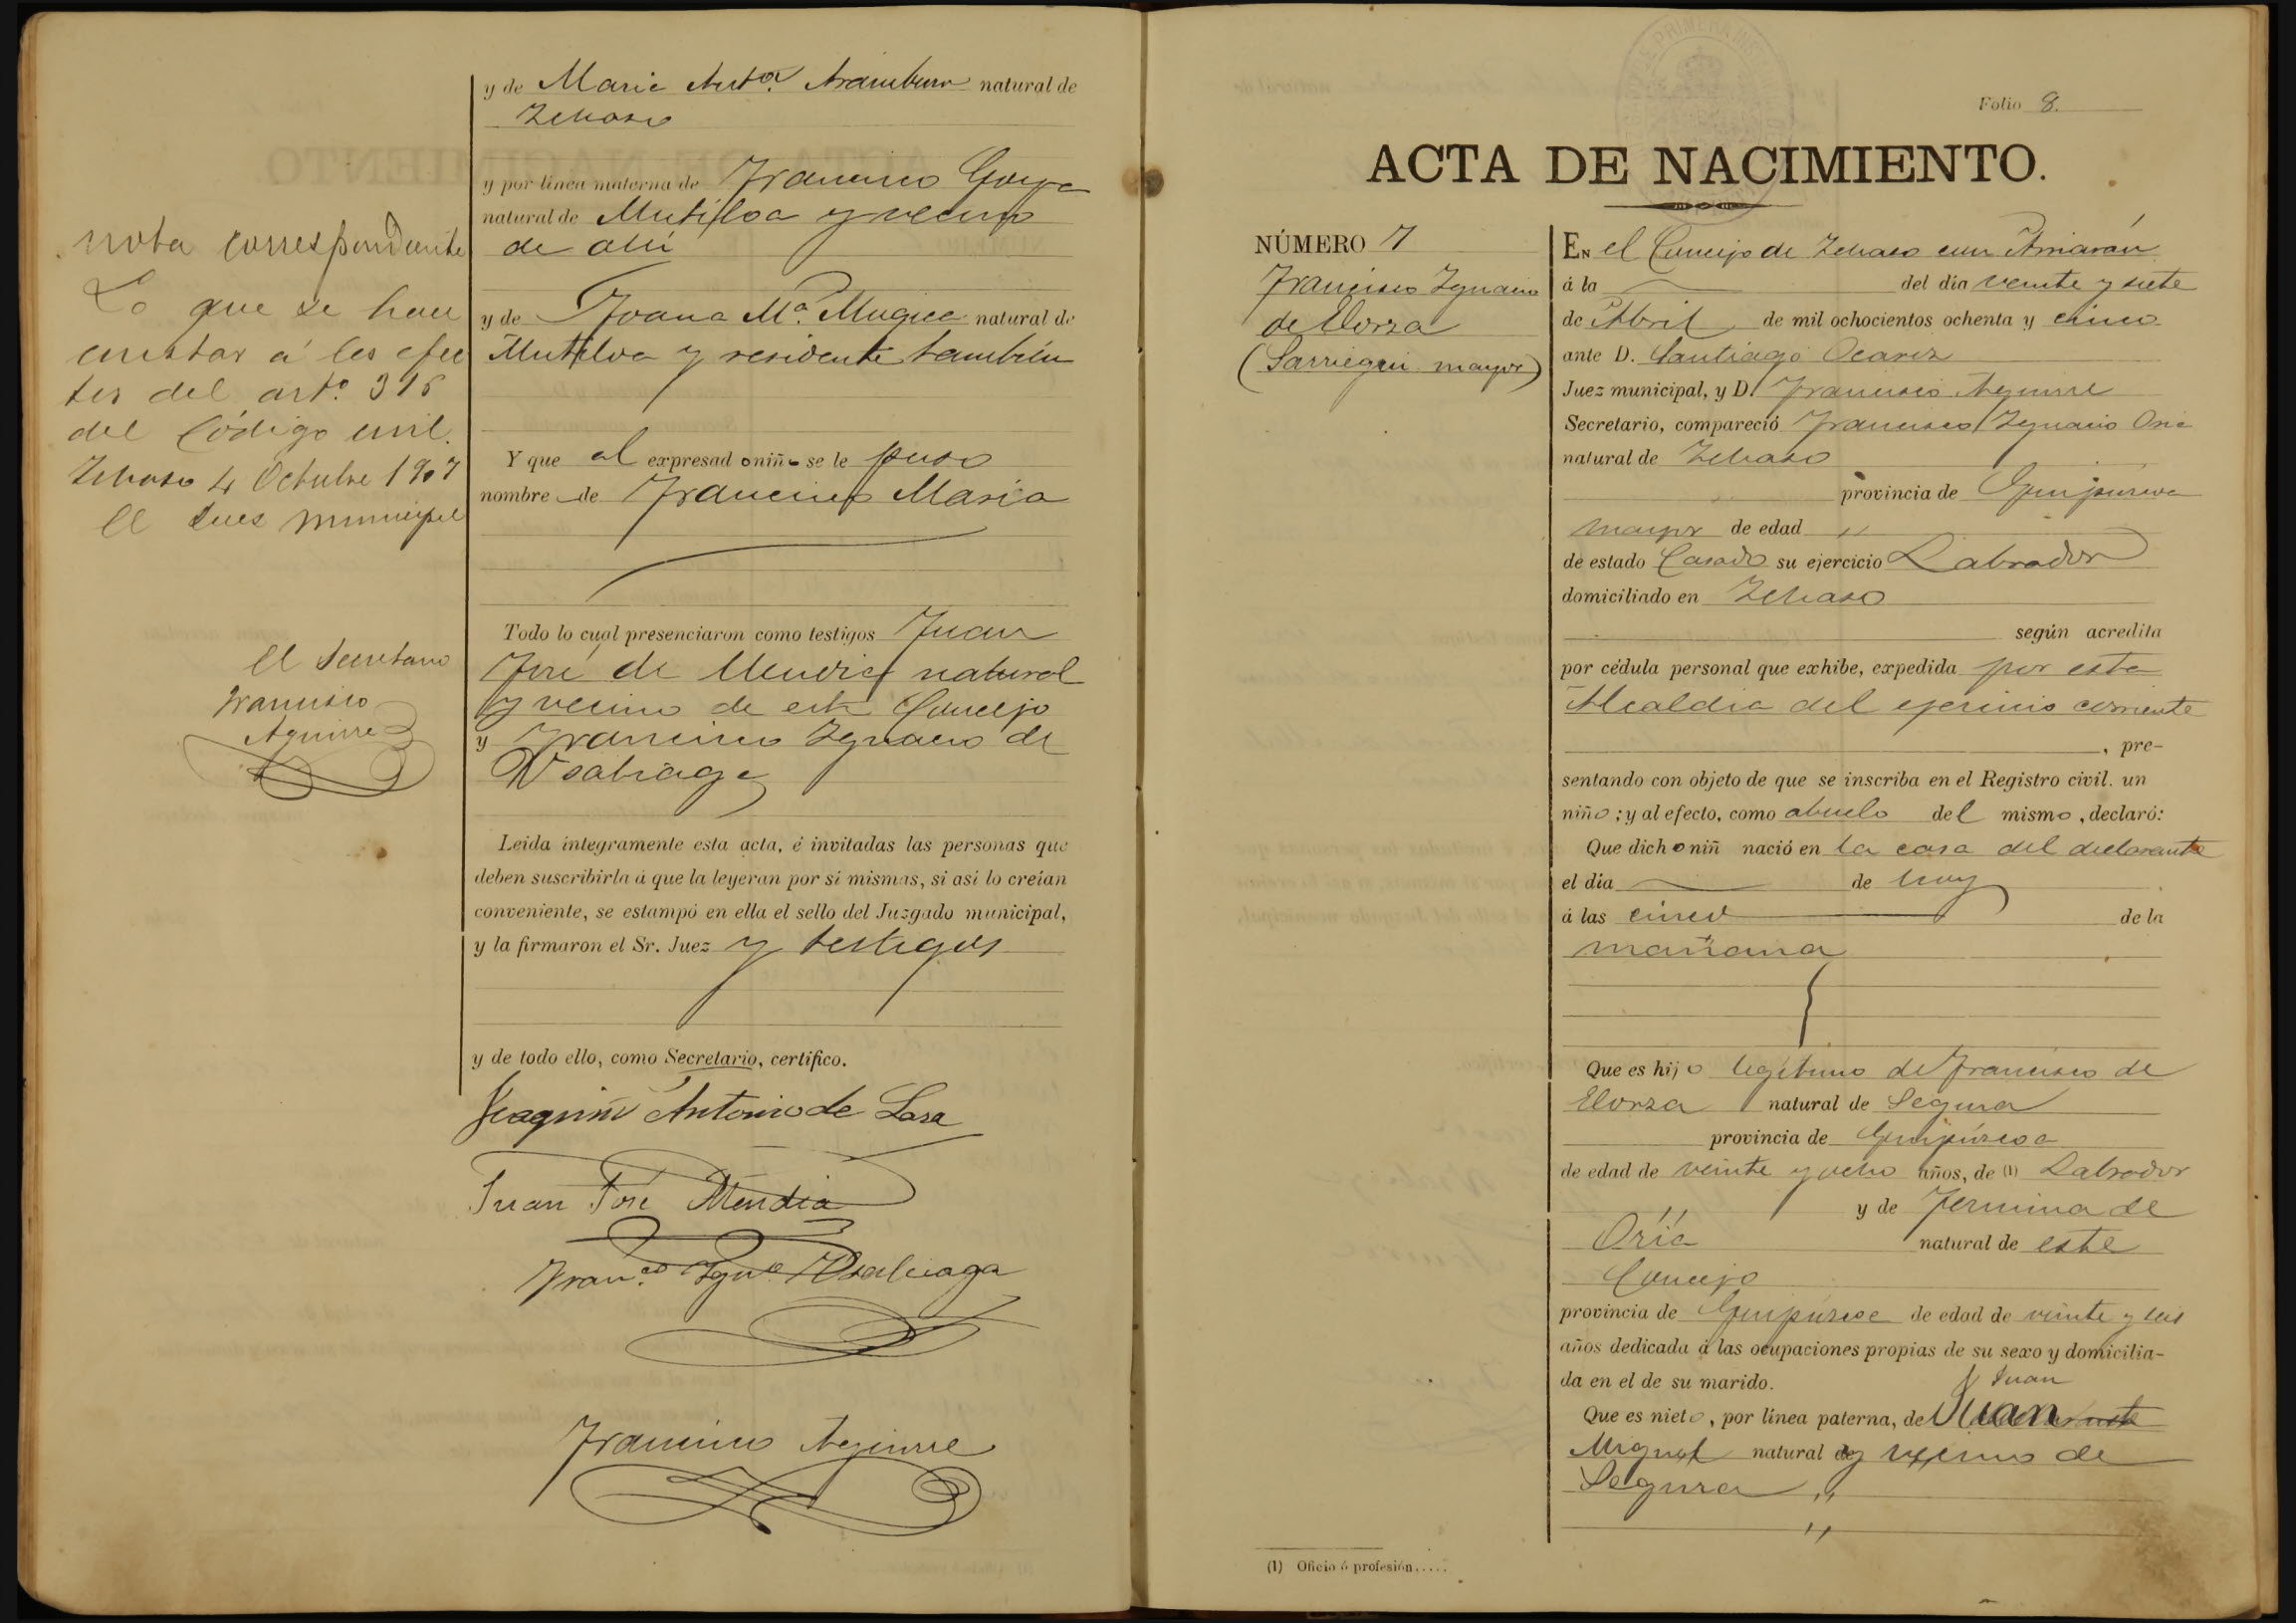 y de Maria Antª. Aramburu natural de
Zerain
y por línea materna de Francisco Goya
natural de Mutiloa y vecino
de allí
y de Juana Mª. Mugica natural de
Mutiloa y residente tambien
Y que al expresado niño se le puso
nombre de Francisco Maria
Todo lo cual presenciaron como testigos Juan
José de Mendia natural
y vecino de este Concejo
y Francisco Ignacio de
Usabiaga
Leida íntegramente esta acta, é invitadas las personas que
deben suscribirla á que la leyeran por sí mismas, si así lo creían
conveniente, se estampó en ella el sello del Juzgado municipal,
y la firmaron el Sr. Juez y testigos
y de todo ello, como Secretario, certifico.
Joaquin Antonio de Lasa
Juan José Mendia
Franco. Igno. Usabiaga
Francisco Aguirre
nota correspondiente
Lo que se hace
constar á los efec
tos del arto. 316
del Código civil.
4 Octubre 1907
El Juez municipal
El Secretario
Francisco
Aguirre
Folio 8.
ACTA DE NACIMIENTO.
NÚMERO 7
Francisco Ignacio
de Elorza
(Sarriegui mayor)
EN el Concejo de
á la del día veinte y siete
de Abril de mil ochocientos ochenta y cinco
ante D. Santiago Ocariz
Juez municipal, y D. Francisco Aguirre
Secretario, compareció Francisco Ignacio Oria
natural de
provincia de Guipúzcoa
mayor de edad "
de estado Casado su ejercicio Labrador
domiciliado en
según acredita
por cédula personal que exhibe, expedida por esta
Alcaldia del ejercicio corriente
, pre-
sentando con objeto de que se inscriba en el Registro civil. un
niño; y al efecto, como abuelo del mismo, declaró:
Que dicho niñ nació en la casa del declarante
el día de hoy
á las cinco de la
mañana
Que es hijo legítimo de Francisco de
Elorza natural de Segura
provincia de Guipúzcoa
de edad de veinte y ocho años, de (1) Labrador
" y de Fermina de
Oria natural de este
Concejo
provincia de Guipúzcoa de edad de veinte y seis
años dedicada á las ocupaciones propias de su sexo y domicilia-
da en el de su marido.
Juan
Que es nieto, por línea paterna, de Juan
Miguel natural y vecino de
Segura "
"
(1) Oficio ó profesión.....